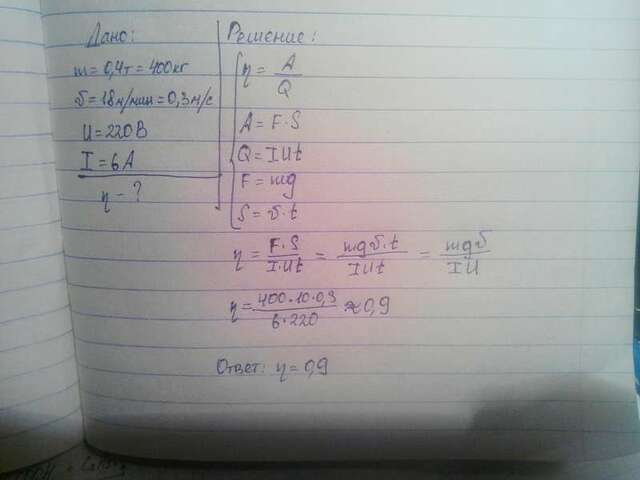 Дано:
m=0,4т=400кг
υ=18м/мин=0,3м/с
U=220В
I=6А
η-?
Решение:
η=A/Q
A=F·S
Q=IUt
F=mg
S=υ·t
η=F·S/I·Ut=mgυ·t/IUt=mgυ/IU
η=400·10·0,3/6·220≈0,9
Ответ: η=0,9